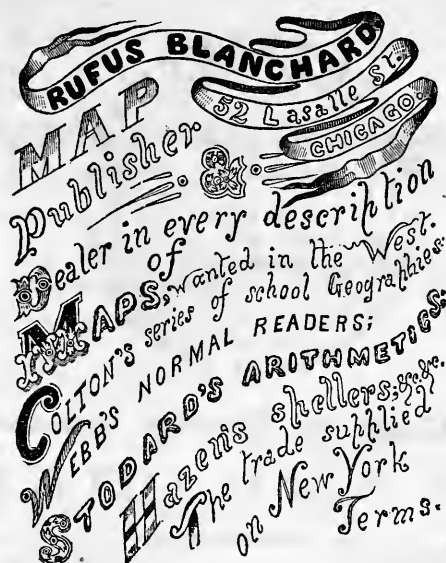 RUFUS BLANCHARD
52 Lasalle St.
CHICAGO.
MAP
Publisher
&
Dealer in every description
of
MAPS, wanted in the West.
COLTON'S series of school Geographies.
WEBB'S NORMAL READERS;
STODARD'S ARITHMETICS.
Hazen's shellers; &c &c.
The trade supplied
on New York
Terms.